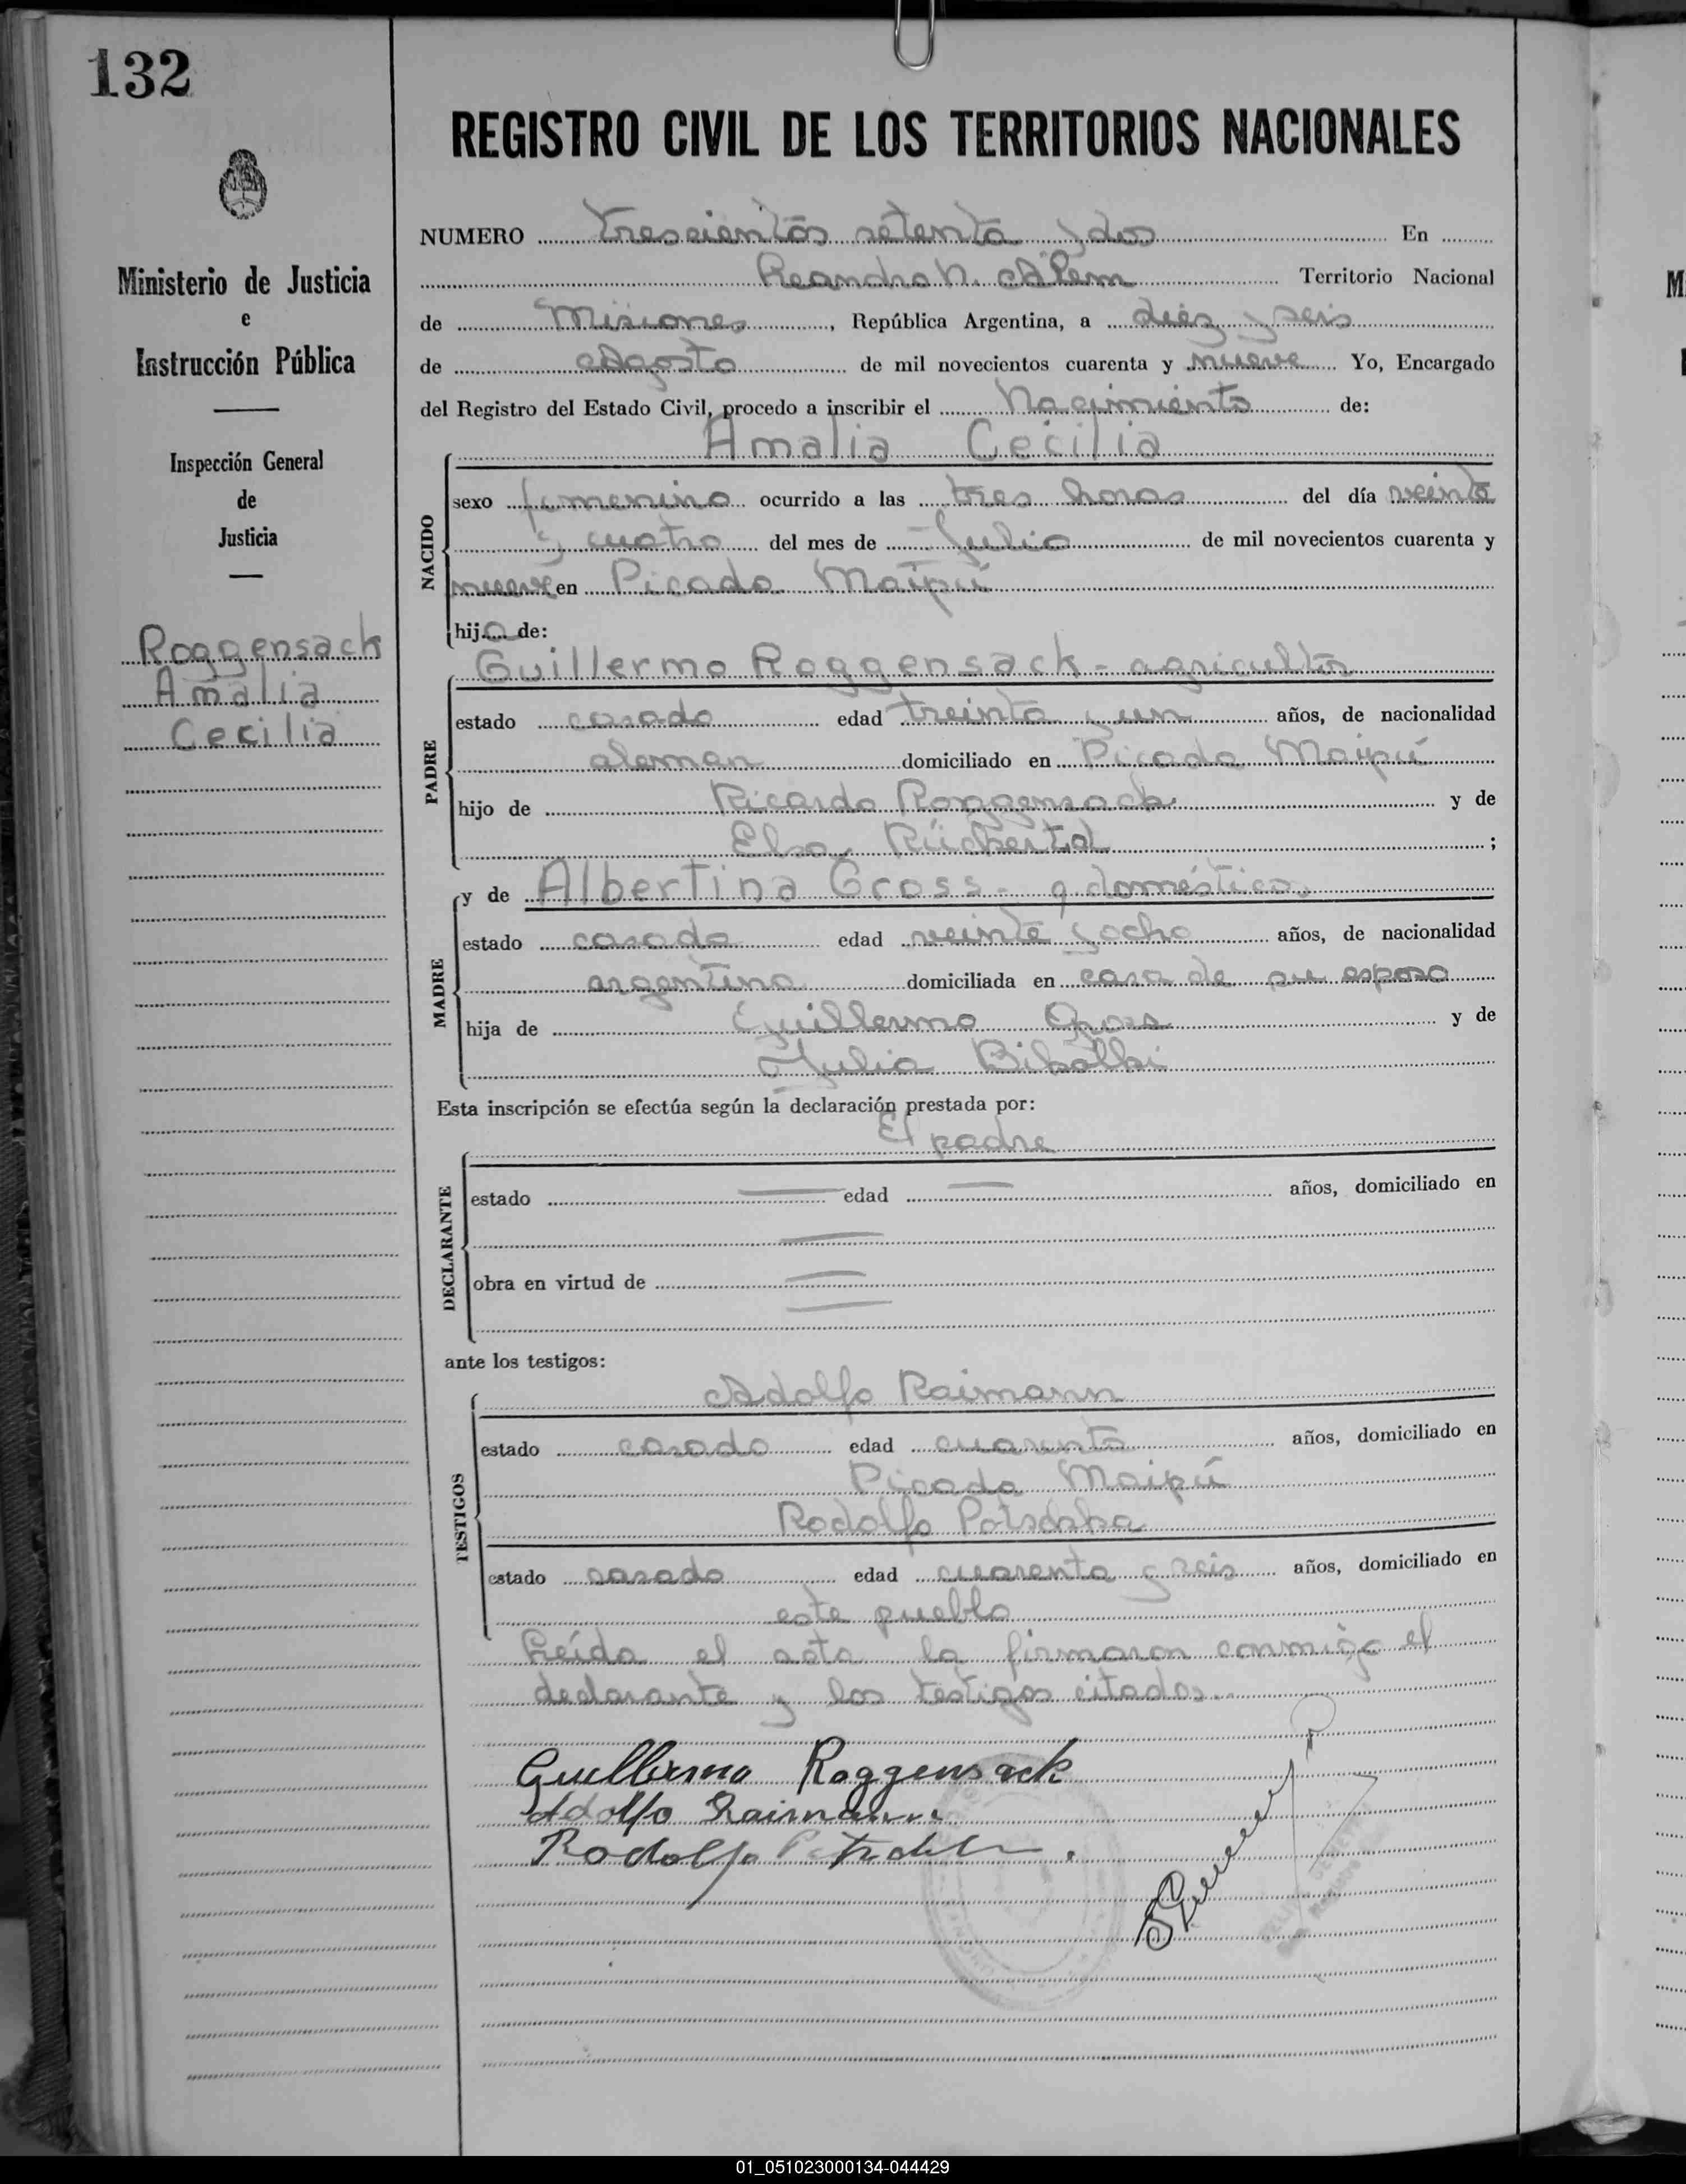 132
REGISTRO CIVIL DE LOS TERRITORIOS NACIONALES
Ministerio de Justicia
e
Instrucción Pública
Inspección General
de
Justicia
Roggensack
Amalia
Cecilia
NUMERO trescientos setenta y dos En
Leandro N. Alem Territorio Nacional
de Misiones, República Argentina, a diez y seis
de Agosto de mil novecientos cuarenta y nueve Yo, Encargado
del Registro del Estado Civil, procedo a inscribir el Nacimiento de:
Amalia Cecilia
NACIDO
sexo femenino ocurrido a las tres horas del día veinte
y cuatro del mes de Julio de mil novecientos cuarenta y
nueve en Picada Maipú
hija de:
Guillermo Roggensack - agricultor
PADRE
estado casado edad treinta y un años, de nacionalidad
aleman domiciliado en Picada Maipú
hijo de Ricardo Roggensack y de
Elsa ;
y de Albertina Gross - q. doméstico,
MADRE
estado casada edad veinte y ocho años, de nacionalidad
argentina domiciliada en casa de su esposo
hija de Guillermo Gross y de
Julia
Esta inscripción se efectúa según la declaración prestada por:
El padre
DECLARANTE
estado edad años, domiciliado en
obra en virtud de
ante los testigos:
Adolfo Raimann
TESTIGOS
estado casado edad cuarenta años, domiciliado en
Picada Maipú
Rodolfo
estado casado edad cuarenta y seis años, domiciliado en
este pueblo
Leída el acta la firmaron conmigo el
declarante y los testigos citados.
Guillermo Roggensack
Adolfo Raimann
Rodolfo
01_051023000134-044429